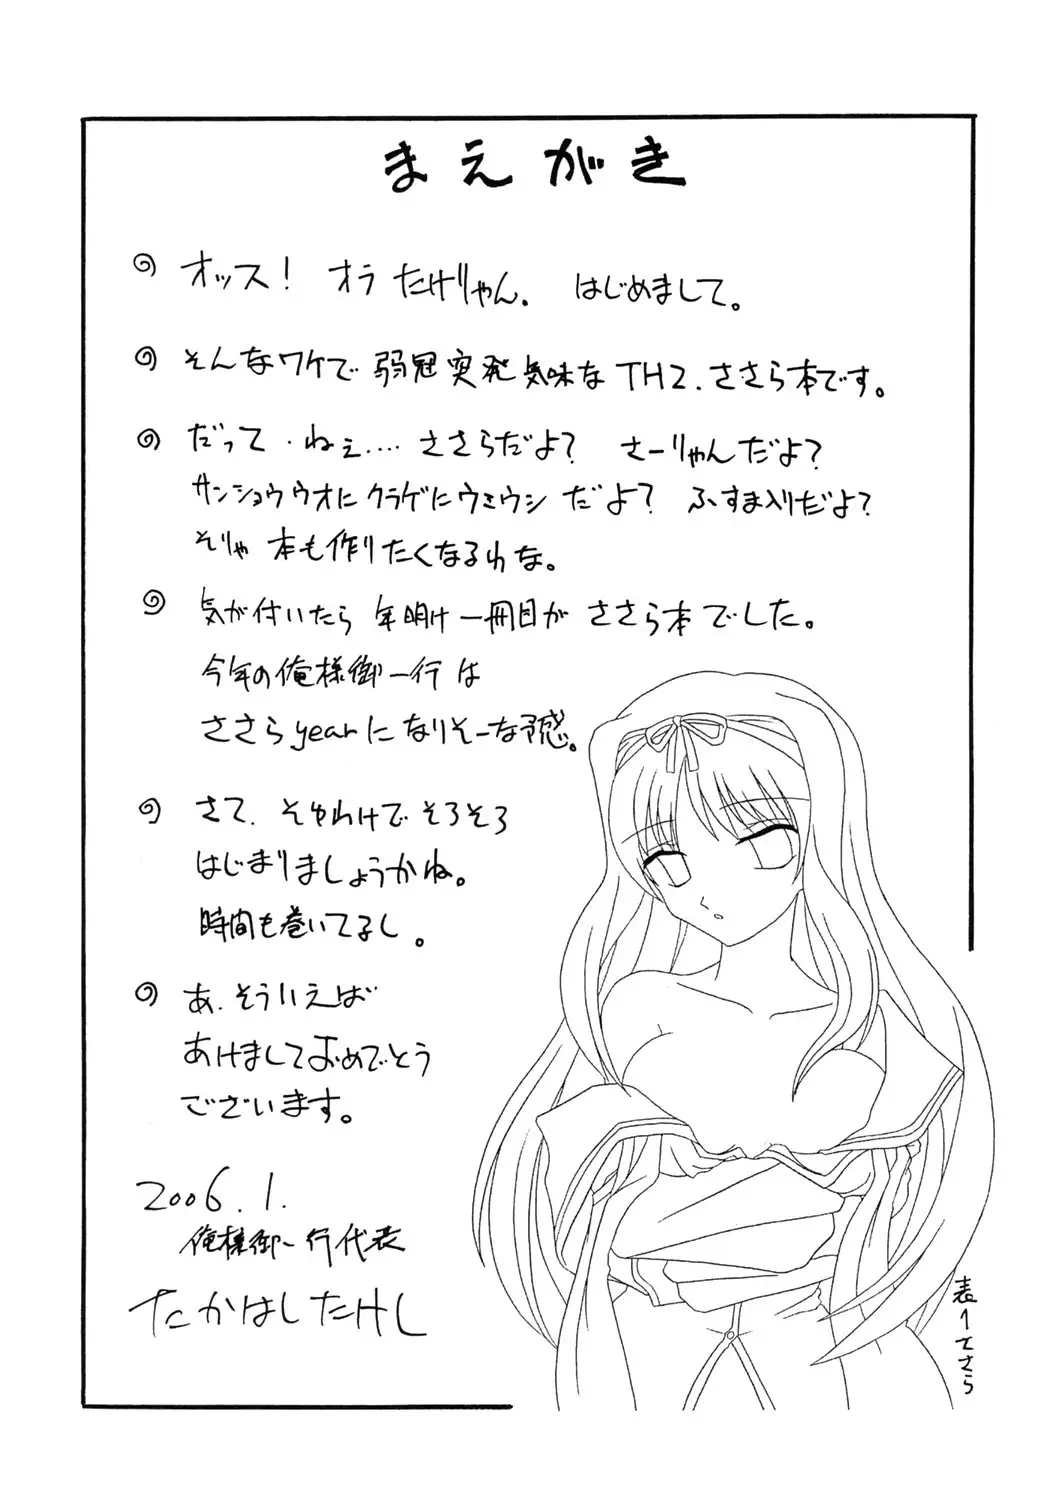 まえがき
オッス! オラ たけりゃん. はじめまして。
そんなワケで 弱冠突発気味な TH2. ささら本です。
だって・ねぇ.... ささらだよ? さーりゃんだよ?
サンショウウオにクラゲにウミウシだよ? ふすま入りだよ?
そりゃ 本も作りたくなるわな。
気が付いたら 年明け一冊目が ささら本でした。
今年の俺様御一行は
ささらyearになりそーな予感。
さて. そゆわけで そろそろ
はじまりましょうかね。
時間も巻いてるし。
あ. そういえば
あけましておめでとう
ございます。
2006.1.
俺様御一行代表
たかはしたけし